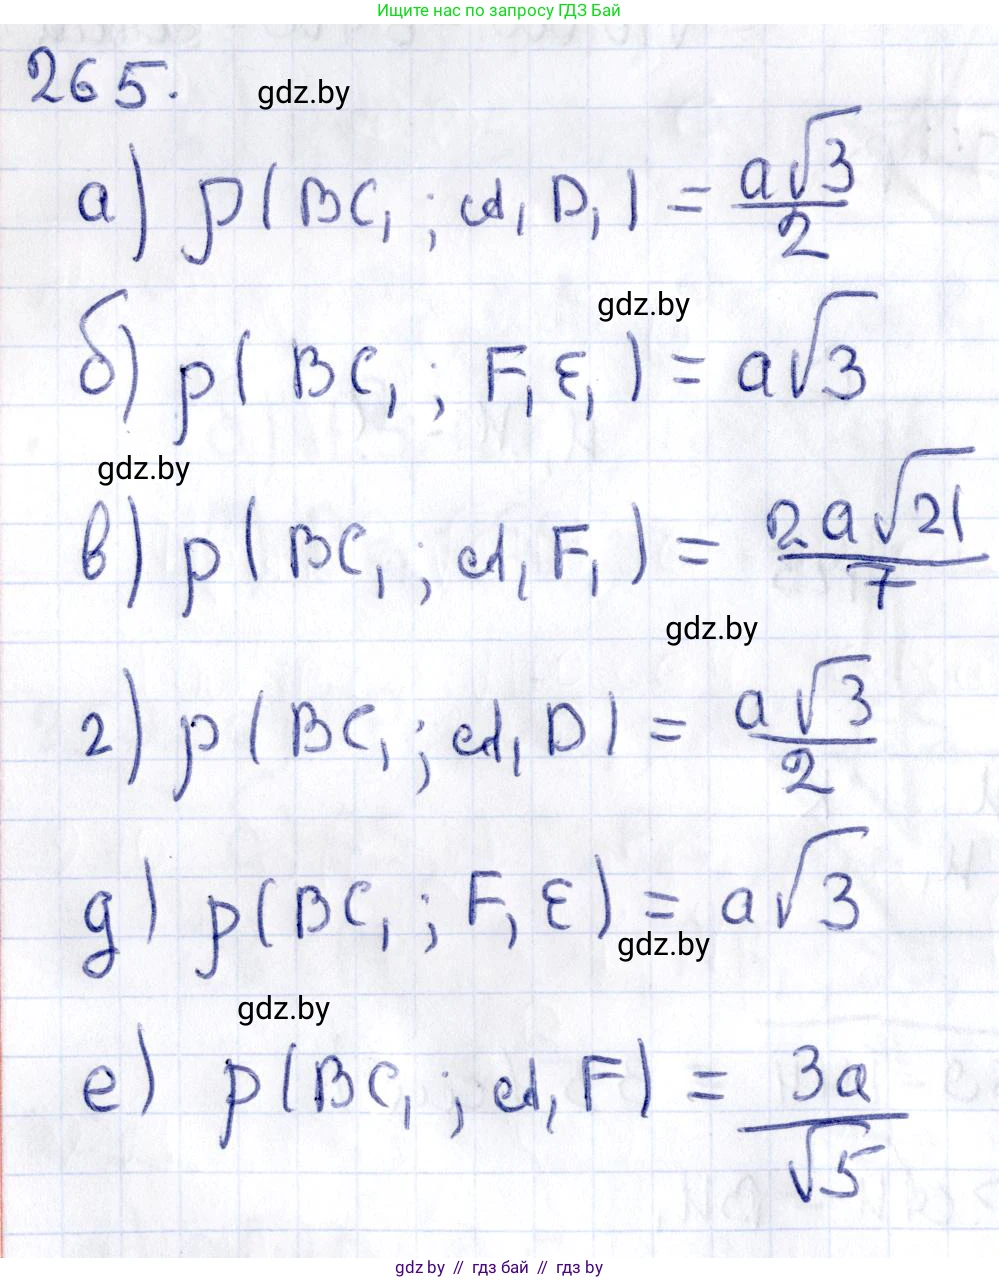 Ищите нас по запросу ГДЗ Бай
265.
gdz.by
а) ρ(BC₁; A₁D₁) = a√3/2
gdz.by
б) ρ(BC₁; F₁E₁) = a√3
gdz.by
в) ρ(BC₁; A₁F₁) = 2a√21/7
gdz.by
г) ρ(BC₁; A₁D) = a√3/2
д) ρ(BC₁; F₁E) = a√3
gdz.by
gdz.by
е) ρ(BC₁; A₁F) = 3a/√5
gdz.by // гдз бай // гдз by